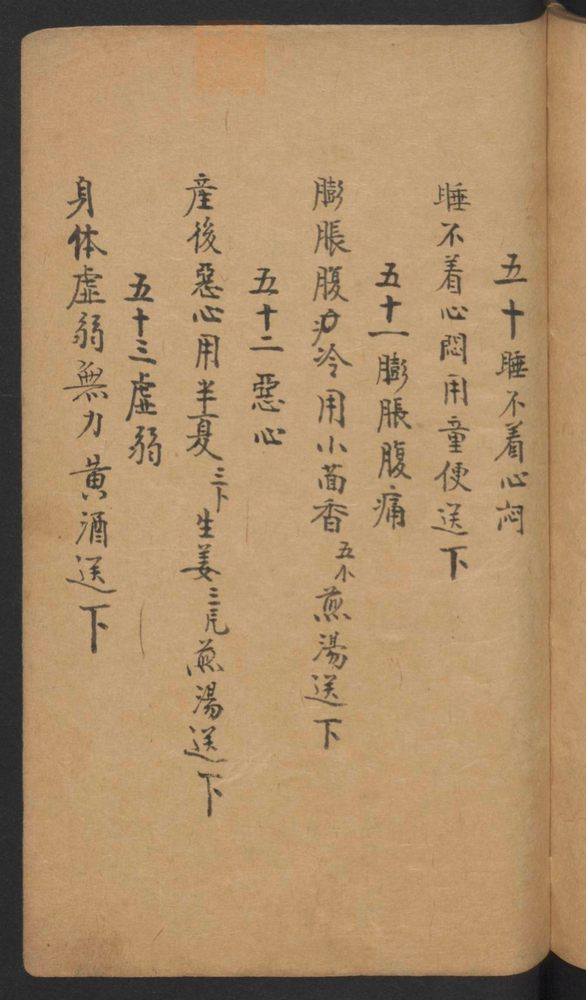 五十睡不着心闷
睡不着心悶用童便送下
五十一膨脹腹痛
膨脹腹冷用小茴香煎湯送下
五十二惡心
產後惡心用半夏三卜生姜三片煎湯送下
五十三虛弱
身体虛弱無力黃酒送下